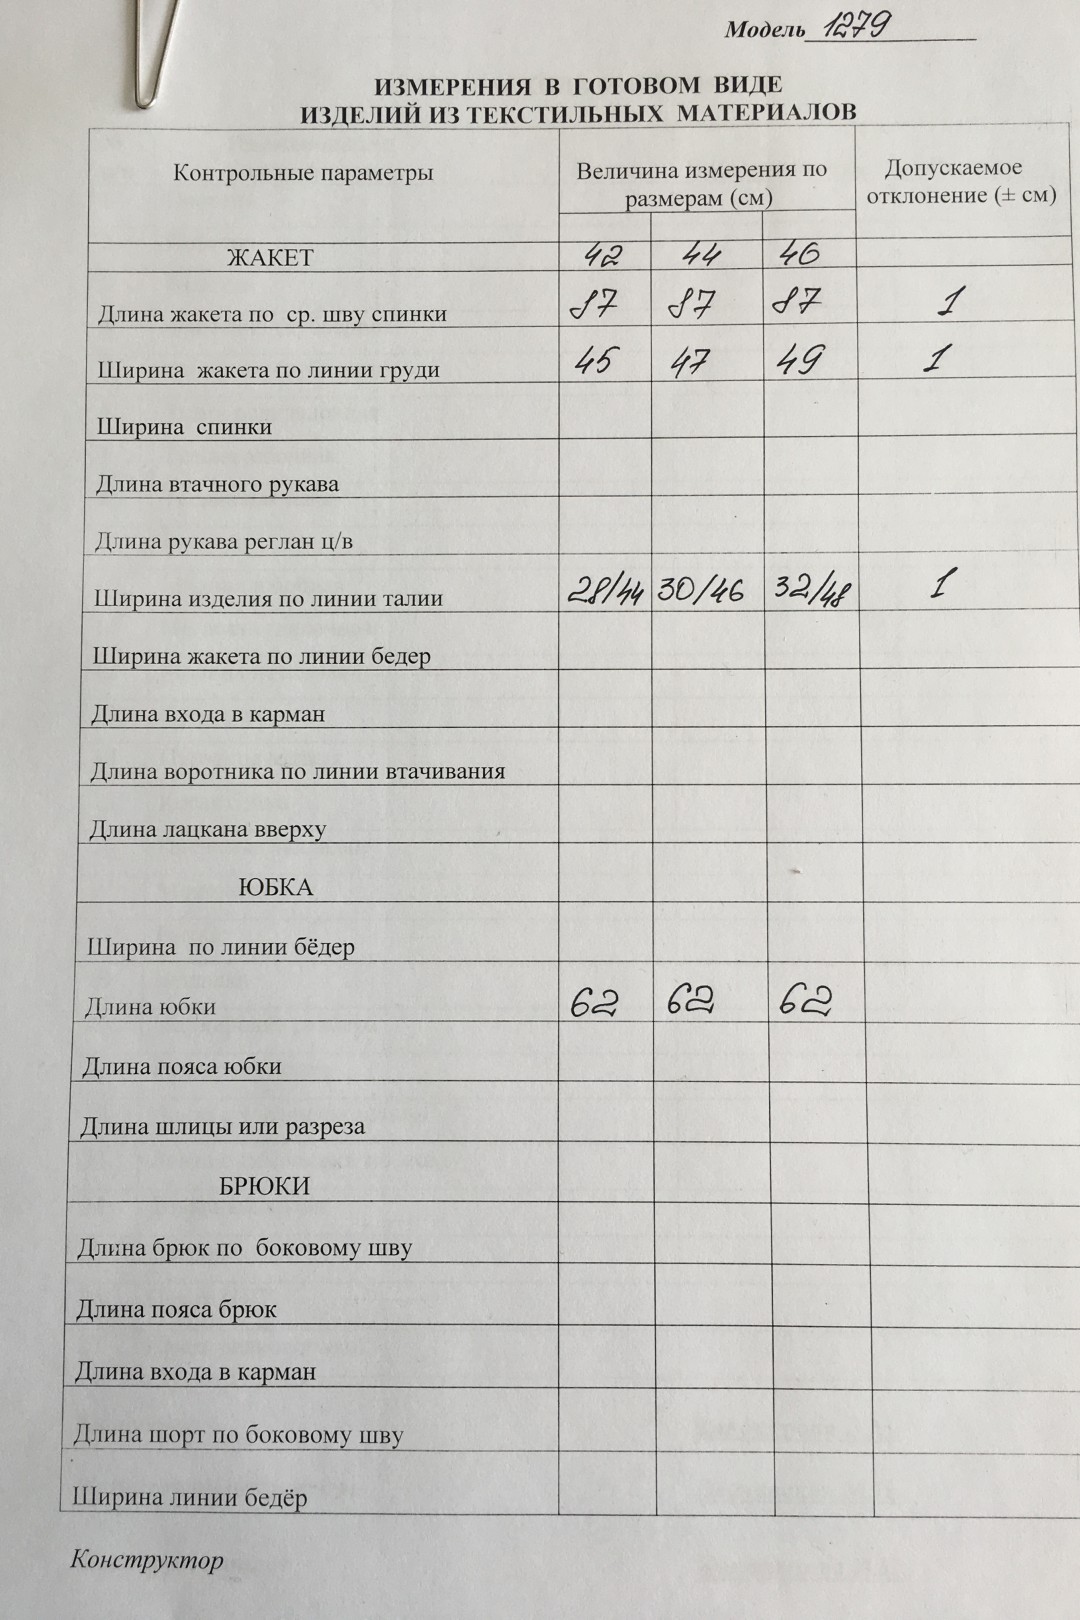 Модель 1279
ИЗМЕРЕНИЯ В ГОТОВОМ ВИДЕ
ИЗДЕЛИЙ ИЗ ТЕКСТИЛЬНЫХ МАТЕРИАЛОВ
Контрольные параметры
Величина измерения по
размерам (см)
Допускаемое
отклонение (± см)
ЖАКЕТ 42 44 46
Длина жакета по ср. шву спинки 87 87 87 1
Ширина жакета по линии груди 45 47 49 1
Ширина спинки
Длина втачного рукава
Длина рукава реглан ц/в
Ширина изделия по линии талии 28/44 30/46 32/48 1
Ширина жакета по линии бедер
Длина входа в карман
Длина воротника по линии втачивания
Длина лацкана вверху
ЮБКА
Ширина по линии бёдер
Длина юбки 62 62 62
Длина пояса юбки
Длина шлицы или разреза
БРЮКИ
Длина брюк по боковому шву
Длина пояса брюк
Длина входа в карман
Длина шорт по боковому шву
Ширина линии бедёр
Конструктор